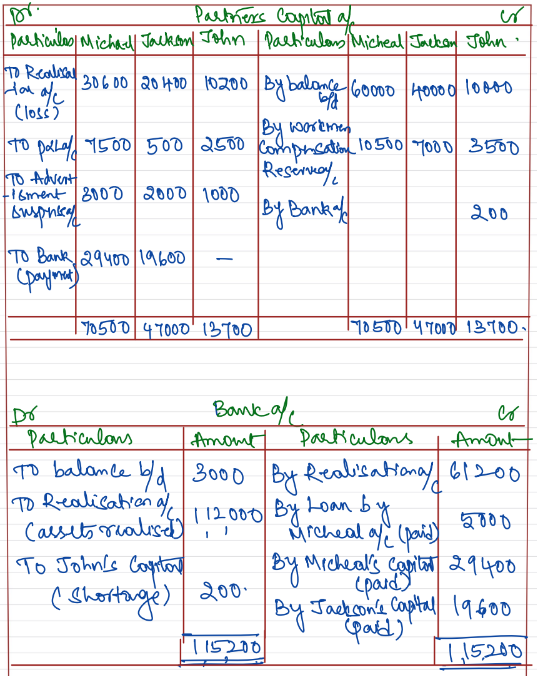 Dr. Partners Capital a/c Cr
Particulars Michael Jackson John Particulars Micheal Jackson John.
To Realisa
-tion a/c
(loss) 30600 20400 10200 By balance b/d 60000 40000 10000
To P&L a/c 7500 500 2500 By workmen
compensation
Reserve a/c 10500 7000 3500
To Advert
-isment
suspense a/c 3000 2000 1000 By Bank a/c 200
To Bank
(payment) 29400 19600 —
70500 47000 13700 70500 47000 13700.
Dr Bank a/c Cr
Particulars Amount Particulars Amount
To balance b/d 3000 By Realisation a/c 61200
To Realisation a/c
(assets realised) 112000 By Loan by
Micheal a/c (paid) 5000
To John's Capital
(shortage) 200. By Micheal's Capital
(paid) 29400
By Jackson's Capital
(paid) 19600
115200 1,15,200